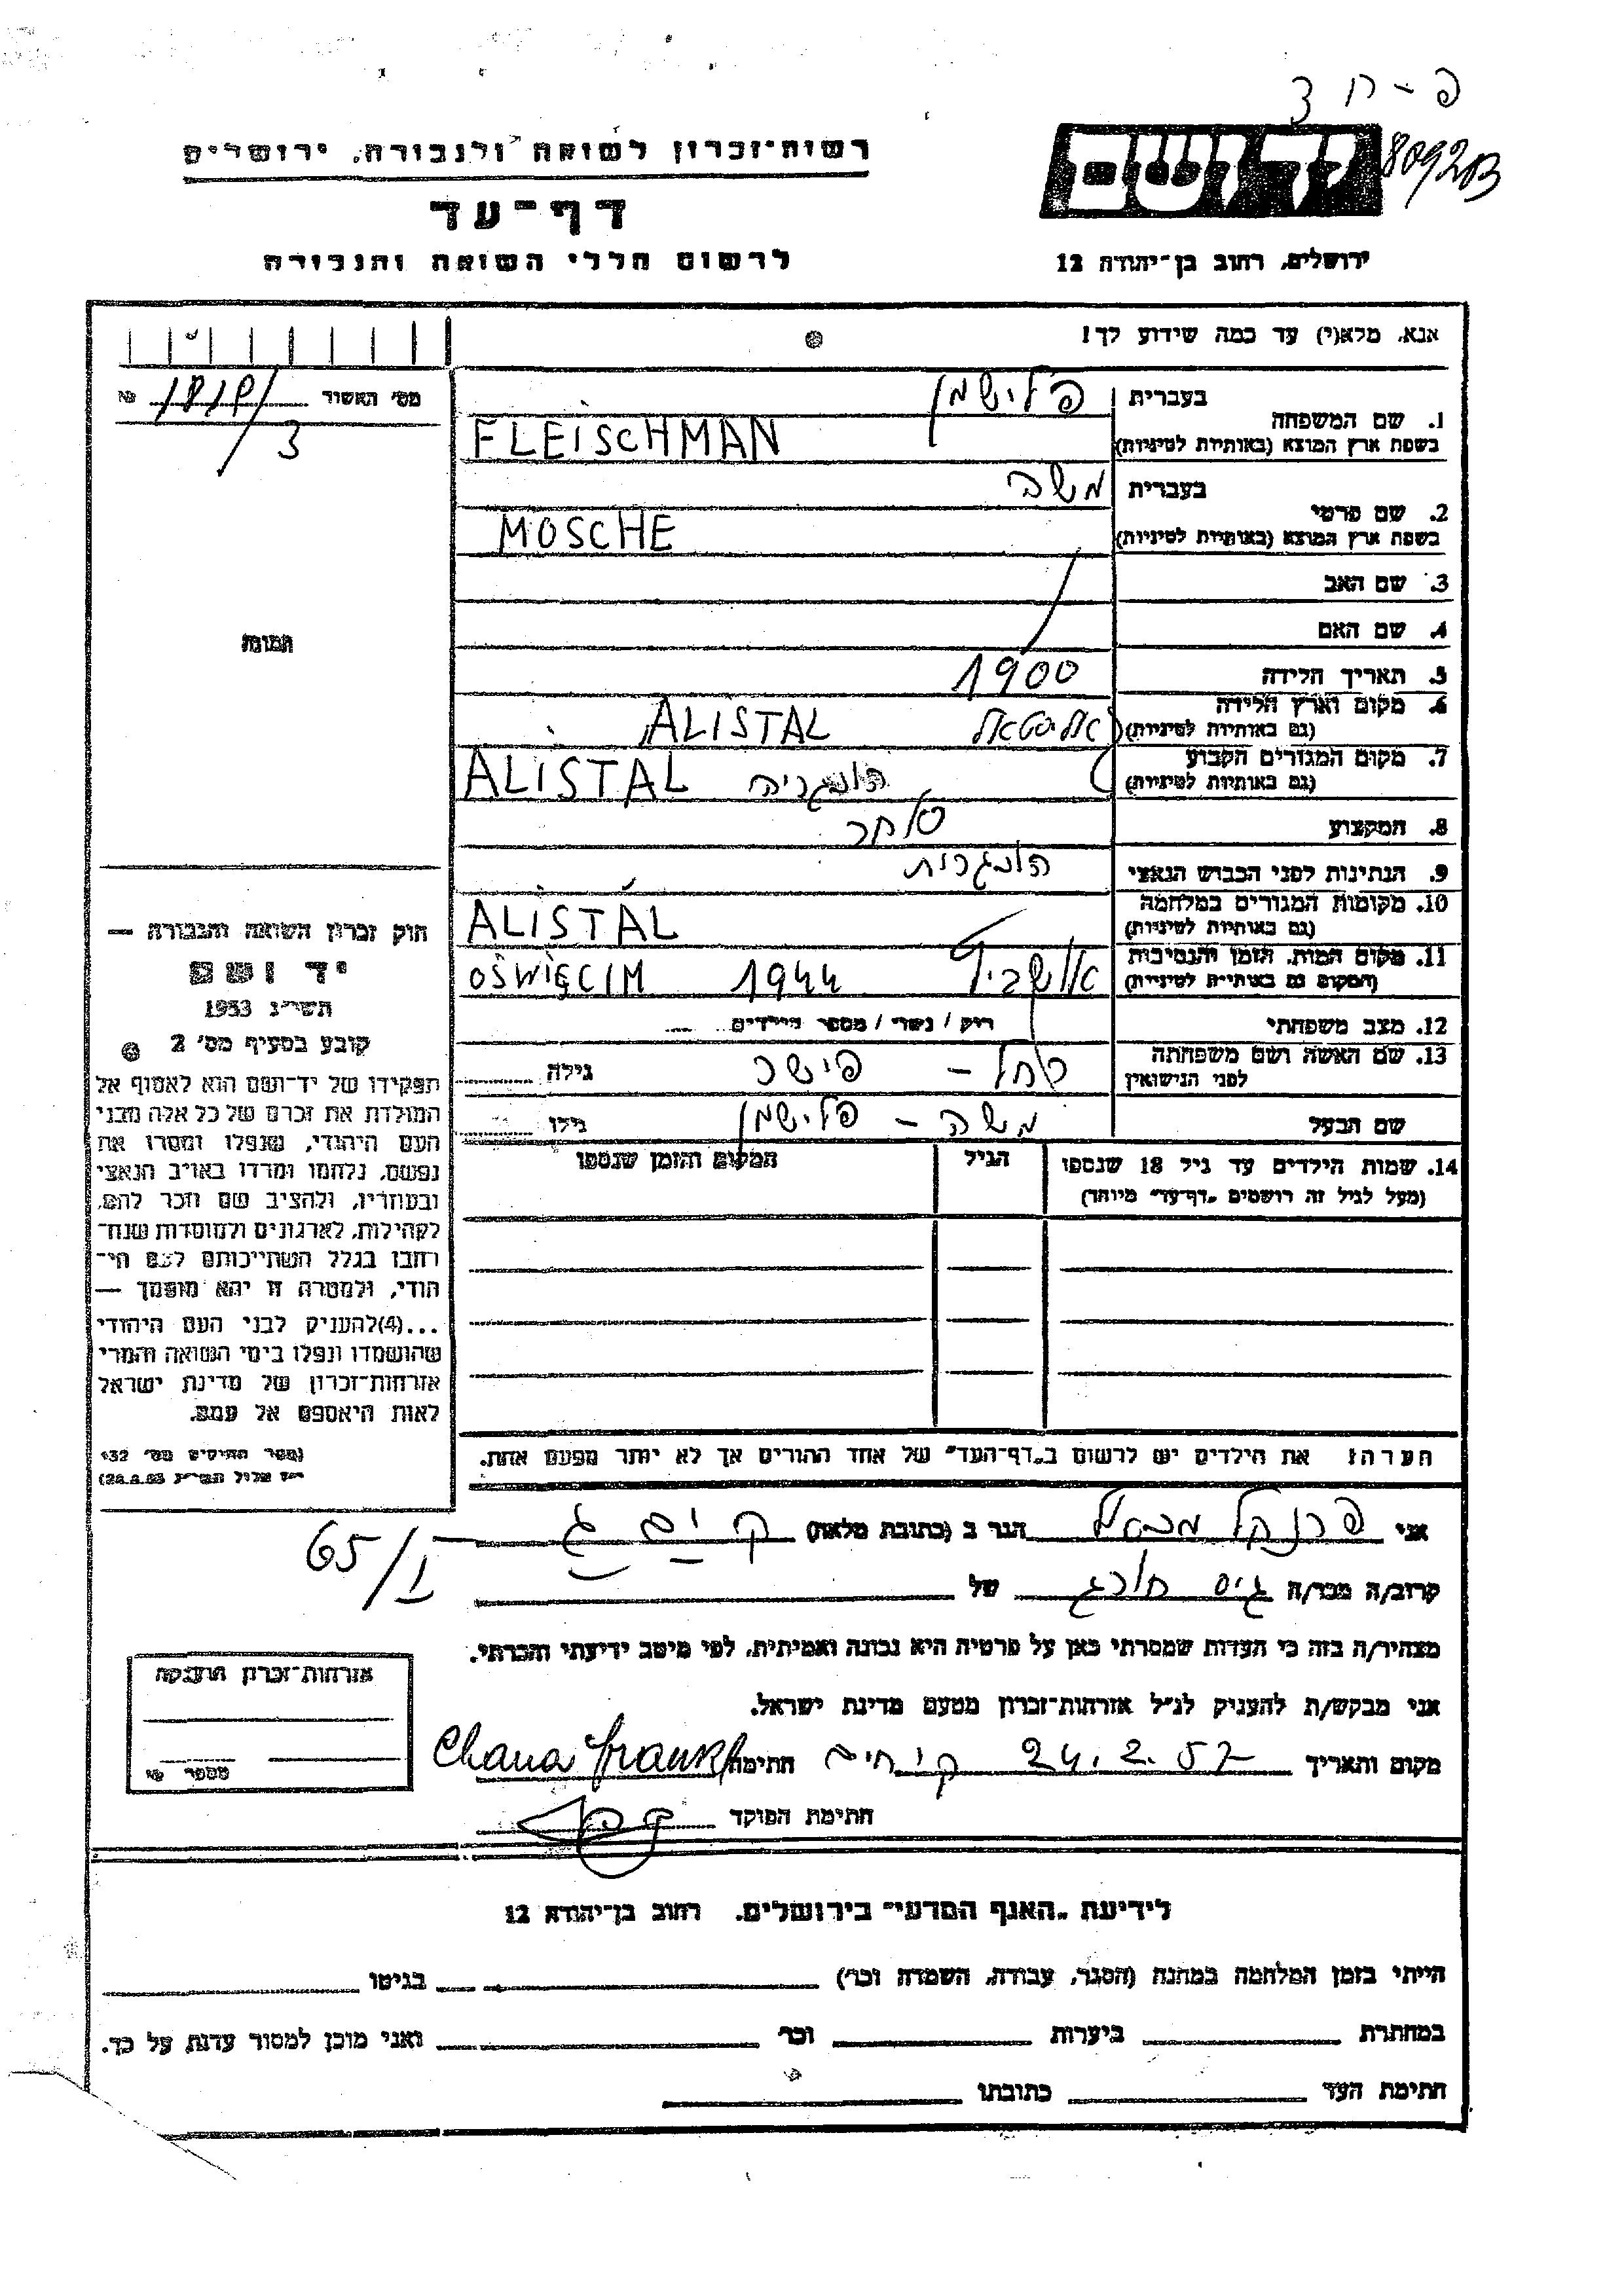 פ - ח 3
8092B
יד ושם
רשות-זכרון לשואה ולגבורה, ירושלים
דף-עד
לרשום חללי השואה והגבורה
ירושלים, רחוב בן-יהודה 12
אנא, מלא(י) עד כמה שידוע לך!
מס׳ האשור
3
1. שם המשפחה
בעברית פלישמן
בשפת ארץ המוצא (באותיות לטיניות) FLEISCHMAN
2. שם פרטי
בעברית משה
בשפת ארץ המוצא (באותיות לטיניות) MOSCHE
3. שם האב
4. שם האם
5. תאריך הלידה 1900
6. מקום וארץ הלידה
(גם באותיות לטיניות) אליסטאל ALISTAL
7. מקום המגורים הקבוע
(גם באותיות לטיניות) הונגריה ALISTAL
8. המקצוע סוחר
9. הנתינות לפני הכבוש הנאצי הונגרית
10. מקומות המגורים במלחמה
(גם באותיות לטיניות) ALISTAL
11. מקום המות, הזמן והנסיבות
(המקום גם באותיות לטיניות) אושביץ 1944 OŚWIĘCIM
12. מצב משפחתי רווק / נשוי / מספר הילדים
13. שם האשה ושם משפחתה
לפני הנישואין רחל - פישר גילה
שם הבעל משה - פלישמן גילו
14. שמות הילדים עד גיל 18 שנספו הגיל המקום והזמן שנספו
(מעל לגיל זה רושמים „דף-עד״ מיוחד)
הערה: את הילדים יש לרשום ב„דף-העד״ של אחד ההורים אך לא יותר מפעם אחת.
תמונה
חוק זכרון השואה והגבורה —
יד ושם
תשי״ג 1953
קובע בסעיף מס׳ 2
תפקידו של יד-ושם הוא לאסוף אל
המולדת את זכרם של כל אלה מבני
העם היהודי, שנפלו ומסרו את
נפשם, נלחמו ומרדו באויב הנאצי
ובעוזריו, ולהציב שם וזכר להם,
לקהילות, לארגונים ולמוסדות שנח-
רבו בגלל השתייכותם לעם הי-
הודי, ולמטרה זו יהא מוסמך —
...(4)להעניק לבני העם היהודי
שהושמדו ונפלו בימי השואה והמרי
אזרחות-זכרון של מדינת ישראל
לאות היאספם אל עמם.
(ספר החוקים מס׳ 132
י״ז אלול תשי״ג 28.8.53)
אני פרנקל הגר ב (כתובת מלאה)
65/I
קרוב/ה מכר/ה גיס חורג של
מצהיר/ה בזה כי העדות שמסרתי כאן על פרטיה היא נכונה ואמיתית, לפי מיטב ידיעתי והכרתי.
אני מבקש/ת להעניק לנ״ל אזרחות-זכרון מטעם מדינת ישראל.
מקום ותאריך 24.2.57 חתימה Chana Frankl
חתימת הפוקד
אזרחות-זכרון הוענקה
מספר
לידיעת „האגף המדעי״ בירושלים, רחוב בן-יהודה 12
הייתי בזמן המלחמה במחנה (הסגר, עבודה, השמדה וכו׳) בגיטו
במחתרת ביערות וכו׳ ואני מוכן למסור עדות על כך.
חתימת העד כתובתו